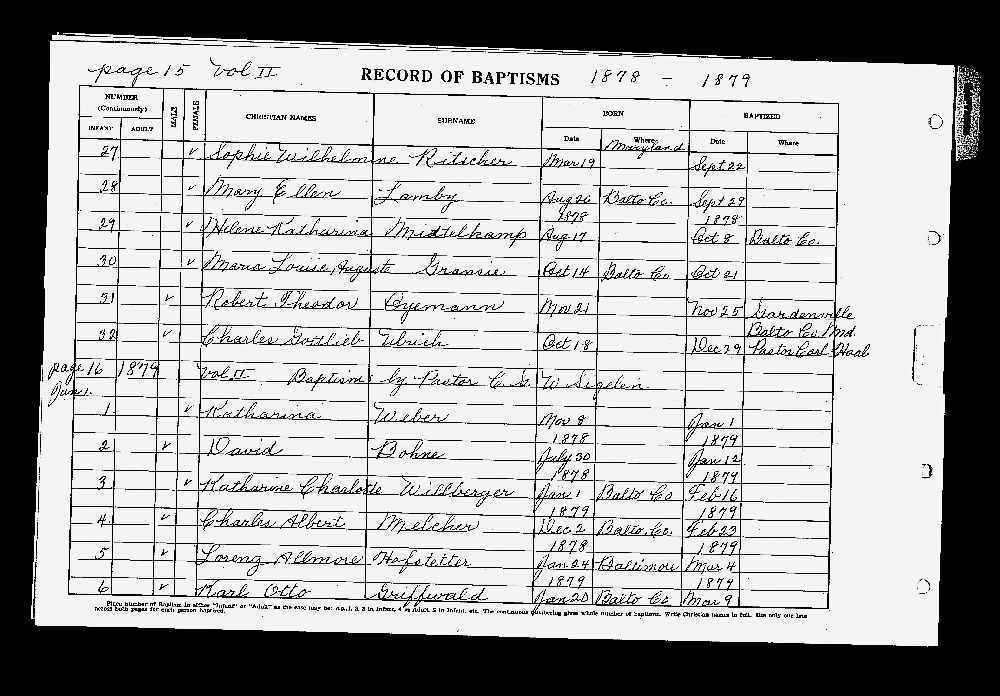 page 15 Vol II RECORD OF BAPTISMS 1878 - 1879
NUMBER (Continuously) MALE FEMALE CHRISTIAN NAMES SURNAME BORN BAPTIZED
INFANT ADULT Date Where Maryland Date Where
27 v Sophie Wilhelmine Ritscher Mar 19 Sept 22
28 v Mary Ellen Lamby Aug 20 Balto Co. Sept 29
1878 1878
29 v Helene Katharina Middelkamp Aug 17 Oct 8 Balto Co.
30 v Maria Louise Auguste Gransie Oct 14 Balto Co Oct 21
31 v Robert Theodor Nov 21 Nov 25 Gardenville
Balto Co. Md.
32 v Charles Gottlieb Ulrich Oct 18 Dec 29 Pastor Carl Haab
page 16 1879 Vol. II Baptisms by Pastor C. G. W. Sigelen
Jan 1.
1 v Katharina Weber Nov 8 Jan 1
1878 1879
2 v David Bohne July 30 Jan 12
1878 1879
3 v Katharine Charlotte Willberger Jan 1 Balto Co Feb 16
1879 1879
4 v Charles Albert Melcher Dec 2 Balto. Co. Feb 23
1878 1879
5 v Lorenz Allmore Hofstetter Jan 24 Baltimore Mar 4
1879 1879
6 v Karl Otto Griffwald Jan 20 Balto Co Mar 9
Place number of Baptism in either "Infant" or "Adult" as the case may be: e.g., 1, 2, 3 in Infant, 4 in Adult, 5 in Infant, etc. The continuous numbering gives whole number of baptisms. Write Christian names in full. Use only one line
across both pages for each person baptized.